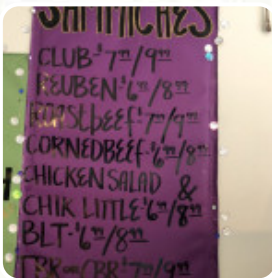 SAMMICHES
CLUB-$7⁹⁹/9⁹⁹
REUBEN-$6⁹⁹/8⁹⁹
ROAST bEEf-$7⁹⁹/9⁹⁹
CORNEDBEEf-$6⁹⁹/8⁹⁹
CHICKEN SALAD &
CHIK LITTLE-$6⁹⁹/8⁹⁹
BLT-$6⁹⁹/8⁹⁹
$7⁹⁹/9⁹⁹